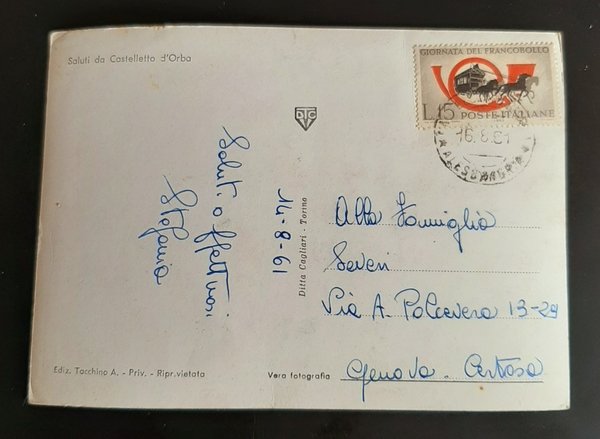 Saluti da Castelletto d'Orba
GIORNATA DEL FRANCOBOLLO
L.15 POSTE ITALIANE
16.8.61
ALESSANDRIA
DCTV
Saluti affettuosi
Stefania
14-8-61
Ditta Cagliari - Torino
Alla Famiglia
Severi
Via A. Polcevera 13-29
Genova - Certosa
Ediz. Tacchino A. - Priv. - Ripr. vietata
Vera fotografia